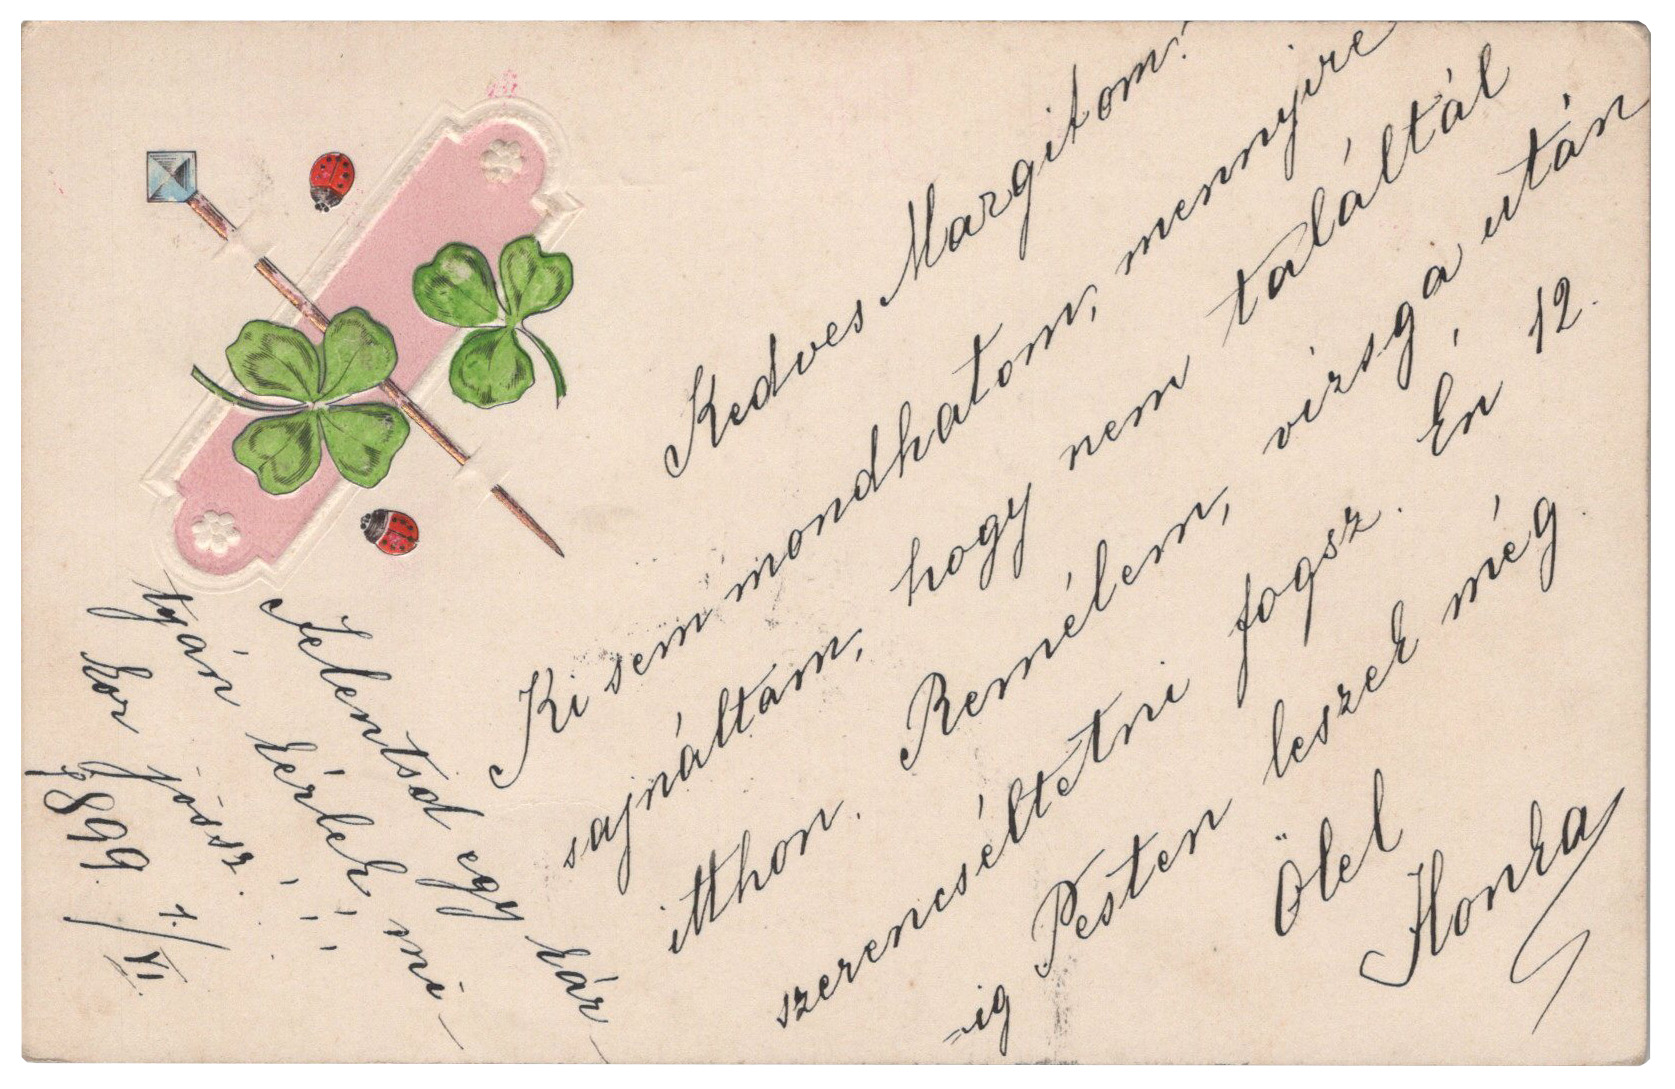 Kedves Margitom!
Ki sem mondhatom, mennyire
sajnáltam, hogy nem találtál
itthon. Remélem, vizsga után
szerencséltetni fogsz. Én 12.
-ig Pesten leszek még.
Ölel
Ilonka
Jelentsd egy kár-
tyán kérlek mi-
kor jössz.
1899. 1./VI.